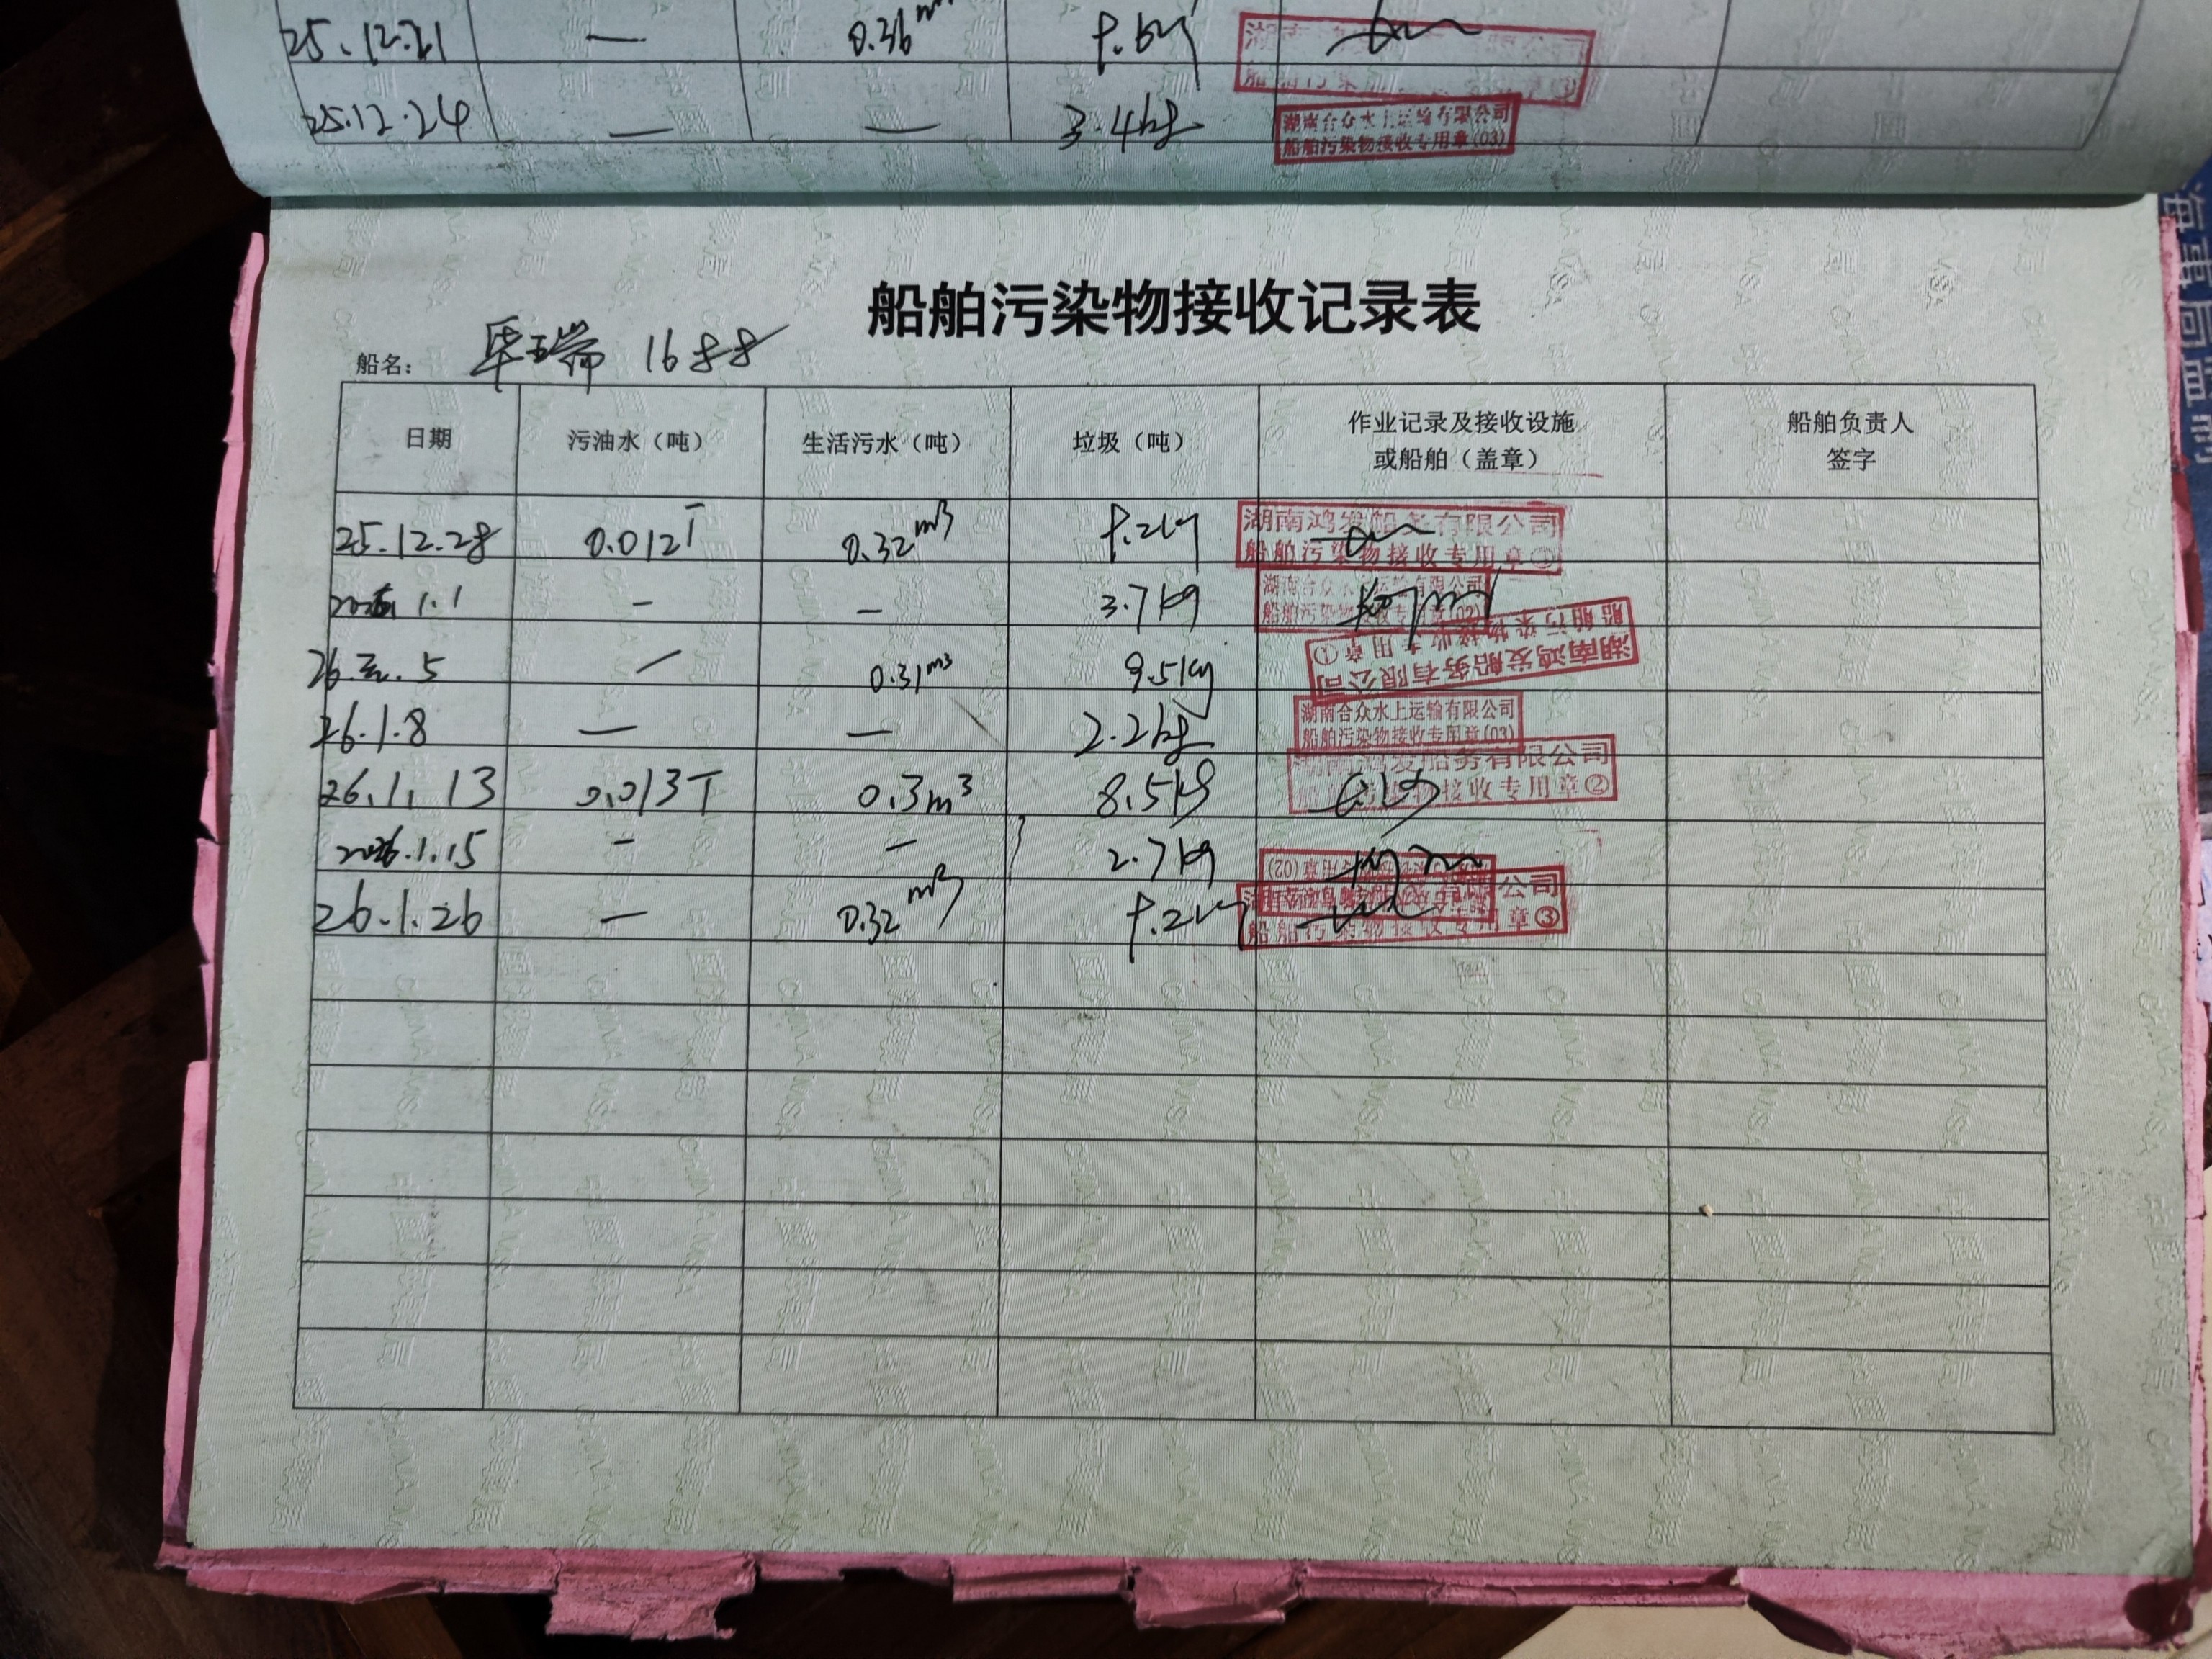 25.12.21 — 0.36 m³
25.12.24 — — 3.4kg 湖南合众水上运输有限公司
船舶污染物接收专用章(03)
船舶污染物接收记录表
船名: 瑞 1688
日期 污油水（吨） 生活污水（吨） 垃圾（吨） 作业记录及接收设施 船舶负责人
或船舶（盖章） 签字
25.12.28 0.012T 0.32m³ 湖南鸿发船务有限公司
船舶污染物接收专用章①
1.1 — — 3.7kg 湖南合众水上运输有限公司
船舶污染物接收专用章(02)
5 / 0.31m³ 9.5kg 湖南鸿发船务有限公司
船舶污染物接收专用章①
26.1.8 — — 2.2kg 湖南合众水上运输有限公司
船舶污染物接收专用章(03)
26.1.13 0.013T 0.3m³ 8.5kg 湖南鸿发船务有限公司
船舶污染物接收专用章②
2026.1.15 — — 2.7kg
26.1.26 — 0.32m³ 公司
船舶污染物接收专用章③